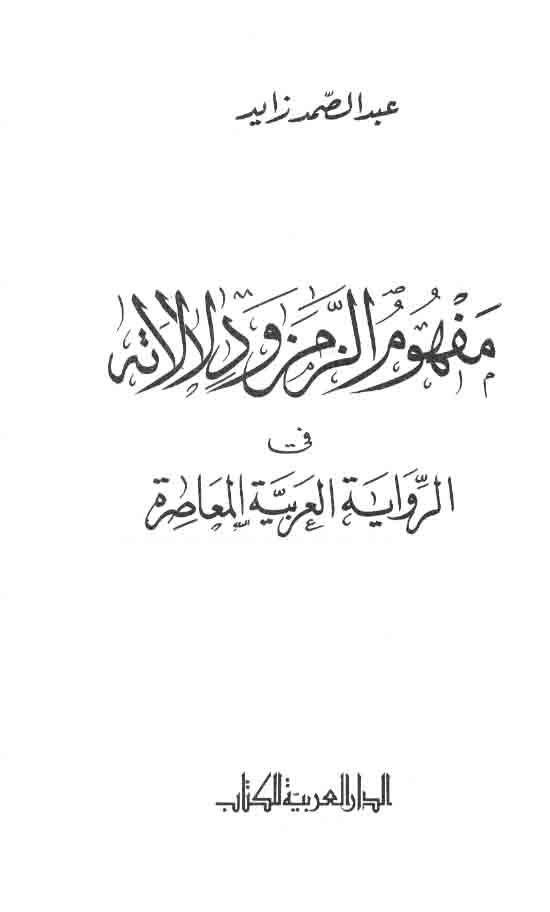 عبد الصّمد زايد
مَفْهُومُ الزّمَن وَدِلالاَته
في
الرِّوَاية العَرَبيَّة المعَاصِرة
الدار العربيّة للكتاب